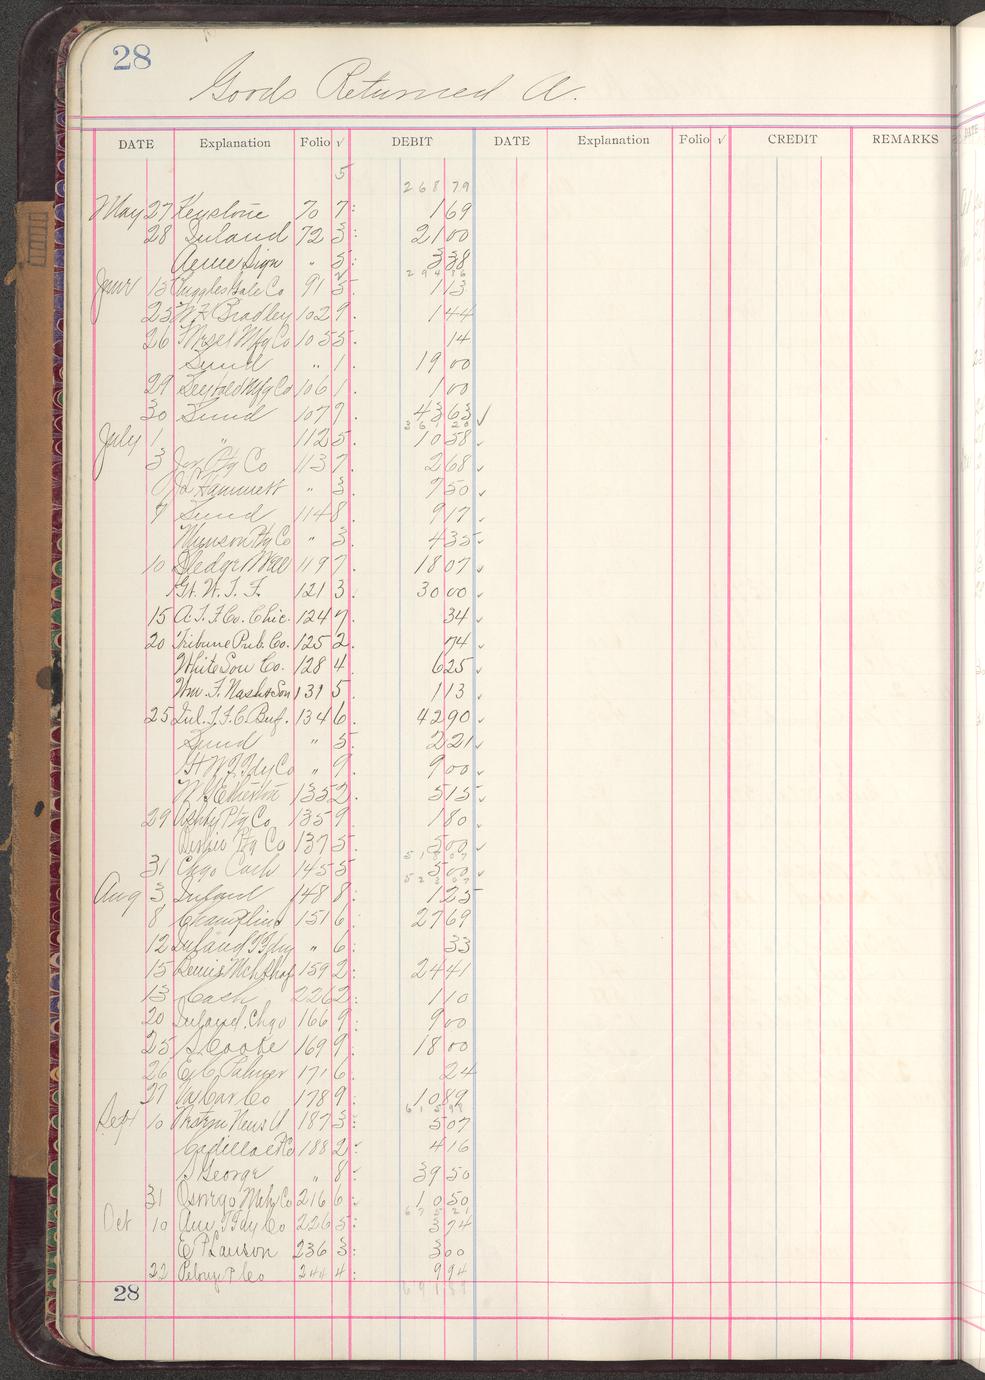 28
Goods Returned A.
DATE Explanation Folio √ DEBIT DATE Explanation Folio √ CREDIT REMARKS
5
268 79
May 27 Keystone 70 7: 1 69
28 Inland 72 3: 21 00
Acme Sign " 5: 3 38
294 86
June 15 Ruggles Gale Co 91 5. 1 13
23 W.F. Bradley 102 9. 1 44
26 Mfg Co 105 5. 14
Sund " 1. 19 00
29 Mfg Co 106 1. 1 00
30 Sund 107 7. 43 63 √
361 20
July 1 " 112 5. 10 58 √
3 Ptg Co 113 7. 2 68 √
J L Hammett " 3. 7 50 √
7 Sund 114 8. 9 17 √
Munson Ptg Co " 3. 4 35 √
10 119 7. 18 07 √
Gt. W. T. F. 121 3. 30 00 √
15 A.T.F. Co. Chic. 124 7. 34 √
20 Tribune Pub. Co. 125 2. 74 √
White Son Co. 128 4. 6 25 √
Wm. F. Nash & Son 131 5. 1 13 √
25 Inl. T.F.C. Buf. 134 6. 42 90 √
Sund " 5. 2 21 √
Gt W T Fdy Co " 9. 9 00 √
135 2. 5 15 √
29 Ashby Ptg Co 135 9. 1 80 √
Ptg Co 137 5. 5 00 √
518 07
31 Chgo Cash 145 5. 5 00 √
523 07
Aug 3 Inland 148 8: 1 25
8 Champlin 151 6: 27 69
12 Inland T Fdy " 6: 33
15 Bemis Mch Shop 159 2: 24 41
13 Cash 226 2: 1 10
20 Inland, Chgo 166 9: 9 00
25 S. Cooke 169 9: 18 00
26 E C Palmer 171 6: 24
27 Car Co 178 9: 10 89
615 98
Sept 10 News U 187 3: 5 07
Cadillac 188 2: 4 16
S George " 8: 39 50
31 Oswego Mch Co 216 6: 10 50
675 21
Oct 10 Am T Fdy Co 226 5: 3 74
E P Lawson 236 3: 3 00
22 Pelouze & Co 244 4: 9 94
28
691 89